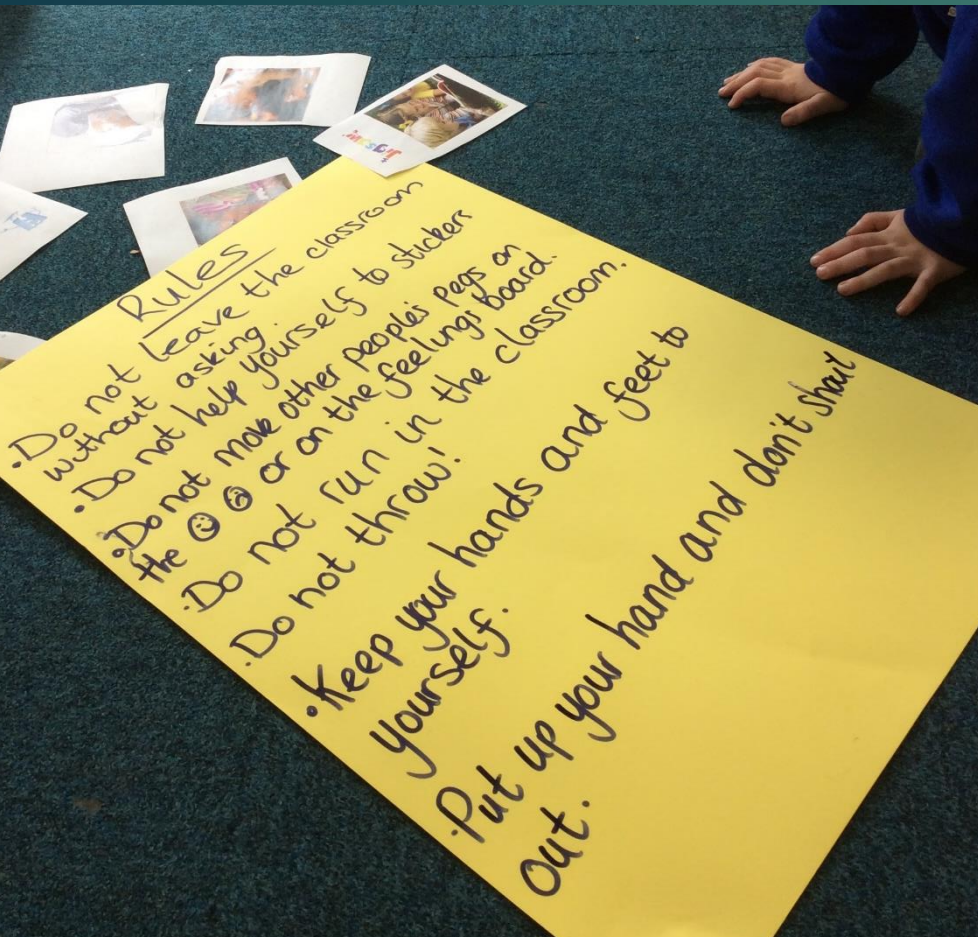 Rules
· Do not leave the classroom
without asking.
· Do not help yourself to stickers
· Do not move other people's pegs on
the ☺ ☹ or on the feelings board.
· Do not run in the classroom.
· Do not throw!
· Keep your hands and feet to
yourself.
· Put up your hand and don't shout
out.